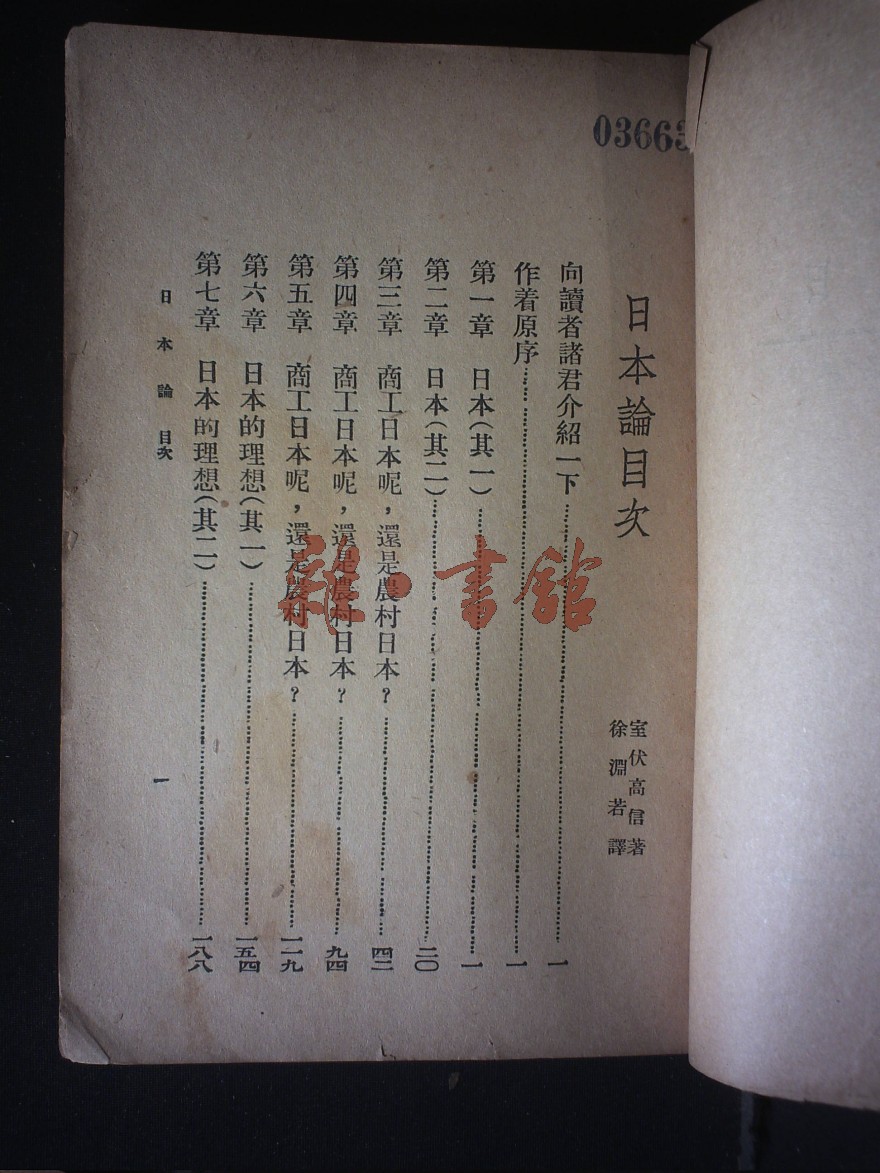 03663
日本論目次
室伏高信著
徐淵若譯
向讀者諸君介紹一下……一
作着原序……一
第一章 日本（其一）……一
第二章 日本（其二）……二〇
第三章 商工日本呢，還是農村日本？……四二
第四章 商工日本呢，還是農村日本？……九四
第五章 商工日本呢，還是農村日本？……一二九
第六章 日本的理想（其一）……一五四
第七章 日本的理想（其二）……一八八
日本論 目次
一
雜·書館